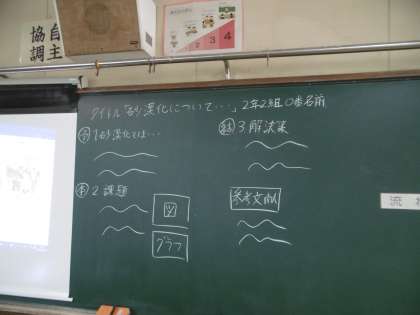 自主
協調
3 4
タイトル「砂漠化について…」2年23組〇番名前
序 1 砂漠化とは…
本 2 課題
図
グラフ
結 3 解決策
参考文献
流